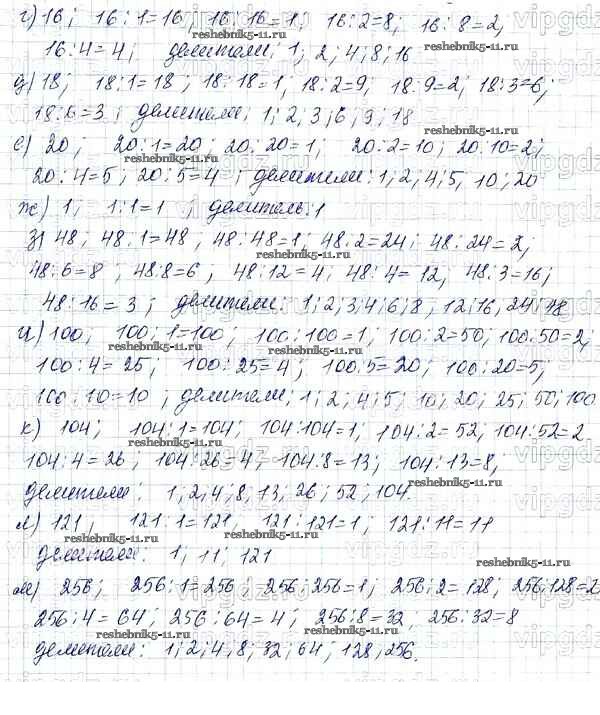 г) 16; 16:1=16; 16:16=1; 16:2=8; 16:8=2;
16:4=4; делители: 1; 2; 4; 8; 16
д) 18; 18:1=18; 18:18=1; 18:2=9; 18:9=2; 18:3=6;
18:6=3; делители: 1; 2; 3; 6; 9; 18
е) 20; 20:1=20; 20:20=1; 20:2=10; 20:10=2;
20:4=5; 20:5=4; делители: 1; 2, 4; 5, 10; 20
ж) 1; 1:1=1; делитель: 1
з) 48; 48:1=48, 48:48=1; 48:2=24; 48:24=2;
48:6=8; 48:8=6, 48:12=4; 48:4=12; 48:3=16;
48:16=3; делители: 1; 2; 3; 4; 6; 8, 12; 16, 24; 48
и) 100; 100:1=100; 100:100=1; 100:2=50; 100:50=2;
100:4=25; 100:25=4; 100:5=20; 100:20=5;
100:10=10; делители: 1; 2; 4; 5; 10; 20; 25; 50; 100
к) 104; 104:1=104; 104:104=1; 104:2=52; 104:52=2
104:4=26; 104:26=4; 104:8=13; 104:13=8;
делители: 1, 2, 4; 8, 13, 26; 52; 104.
л) 121; 121:1=121, 121:121=1; 121:11=11
делители: 1; 11; 121
м) 256; 256:1=256; 256:256=1; 256:2=128; 256:128=2
256:4=64; 256:64=4; 256:8=32, 256:32=8
делители: 1; 2; 4; 8; 32; 64; 128, 256.
reshebnik5-11.ru
vipgdz.ru